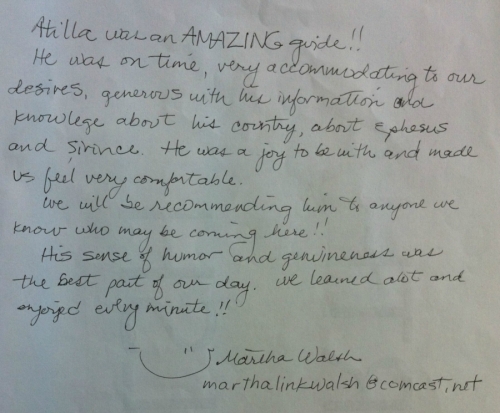 Atilla was an AMAZING guide!!
He was on time, very accommodating to our
desires, generous with his information and
knowlege about his country, about Ephesus
and Sirince. He was a joy to be with and made
us feel very comfortable.
We will be recommending him to anyone we
know who may be coming here!!
His sense of humor and genuineness was
the best part of our day. We learned alot and
enjoyed every minute!!
Martha Walsh
marthalinkwalsh@comcast.net